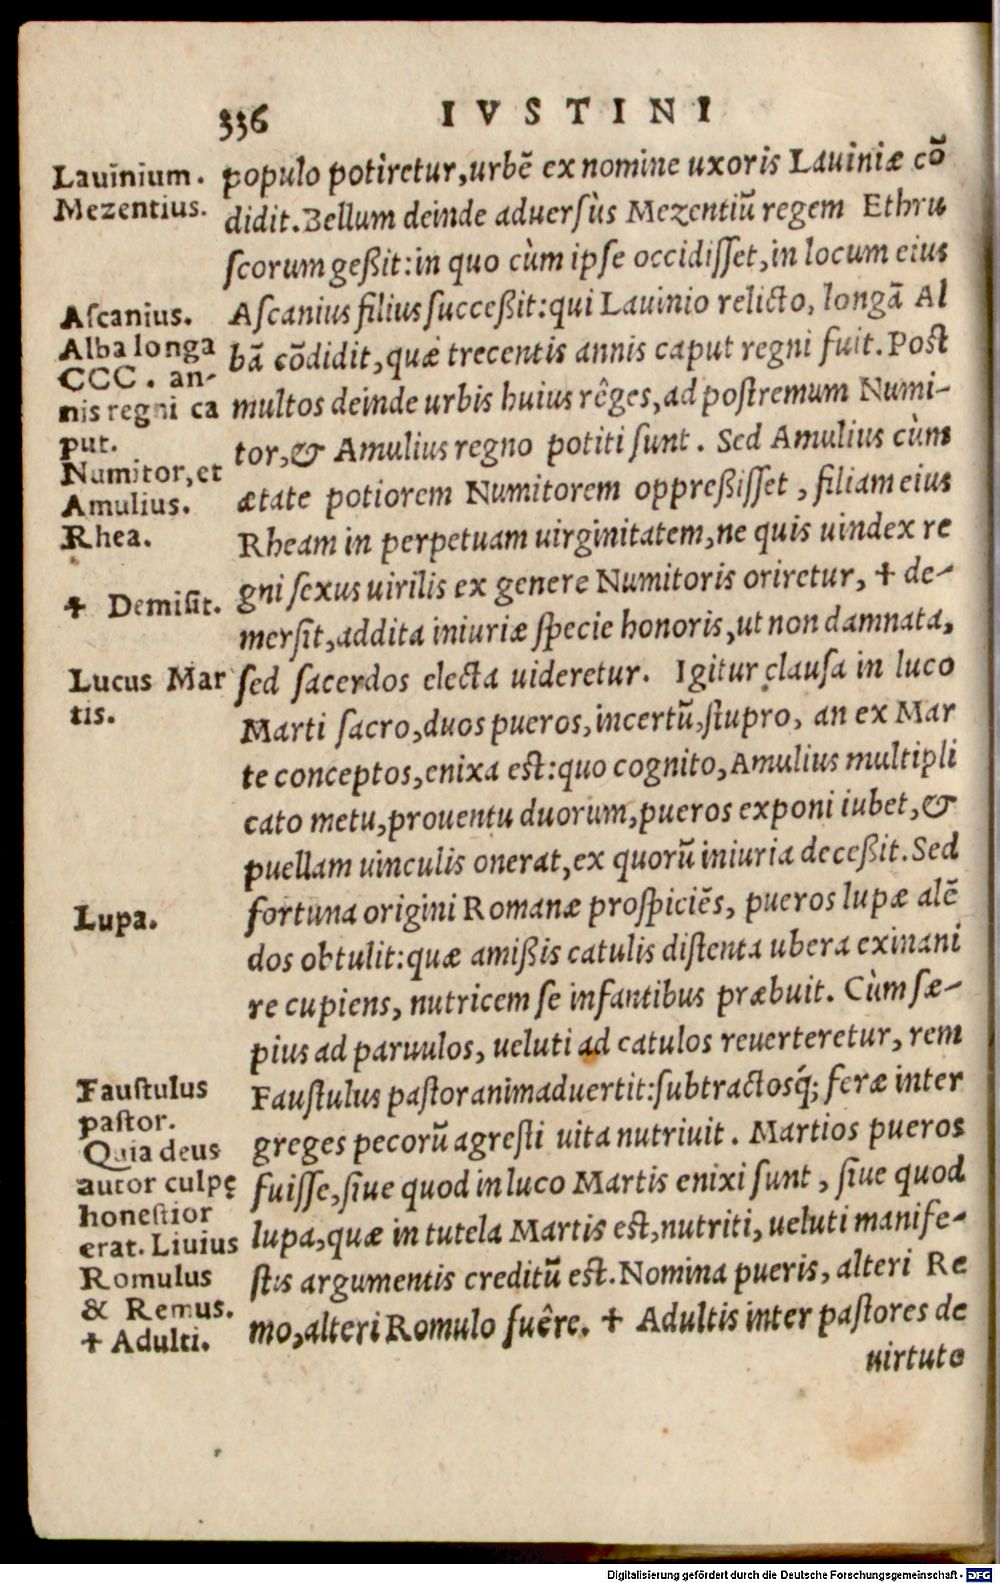 336
IVSTINI
Lauinium.
Mezentius.
Ascanius.
Alba longa
CCC. an-
nis regni ca
put.
Numitor, et
Amulius.
Rhea.
✝ Demisit.
Lucus Mar
tis.
Lupa.
Faustulus
pastor.
Quia deus
autor culpę
honestior
erat. Liuius
Romulus
& Remus.
✝ Adulti.
populo potiretur, urbē ex nomine uxoris Lauiniæ cō
didit. Bellum deinde aduersùs Mezentiū regem Ethru
scorum geßit: in quo cùm ipse occidisset, in locum eius
Ascanius filius succeßit: qui Lauinio relicto, longā Al
bā cōdidit, quæ trecentis annis caput regni fuit. Post
multos deinde urbis huius rêges, ad postremum Numi-
tor, & Amulius regno potiti sunt. Sed Amulius cùm
ætate potiorem Numitorem oppreßisset, filiam eius
Rheam in perpetuam uirginitatem, ne quis uindex re
gni sexus uirilis ex genere Numitoris oriretur, ✝ de-
mersit, addita iniuriæ specie honoris, ut non damnata,
sed sacerdos electa uideretur. Igitur clausa in luco
Marti sacro, duos pueros, incertū, stupro, an ex Mar
te conceptos, enixa est: quo cognito, Amulius multipli
cato metu, prouentu duorum, pueros exponi iubet, &
puellam uinculis onerat, ex quorū iniuria deceßit. Sed
fortuna origini Romanæ prospiciēs, pueros lupæ alē
dos obtulit: quæ amißis catulis distenta ubera exinani
re cupiens, nutricem se infantibus præbuit. Cùm sæ-
pius ad paruulos, ueluti ad catulos reuerteretur, rem
Faustulus pastor animaduertit: subtractosq́; feræ inter
greges pecorū agresti uita nutriuit. Martios pueros
fuisse, siue quod in luco Martis enixi sunt, siue quod
lupa, quæ in tutela Martis est, nutriti, ueluti manife-
stis argumentis creditū est. Nomina pueris, alteri Re
mo, alteri Romulo fuêre. ✝ Adultis inter pastores de
uirtute
Digitalisierung gefördert durch die Deutsche Forschungsgemeinschaft - DFG